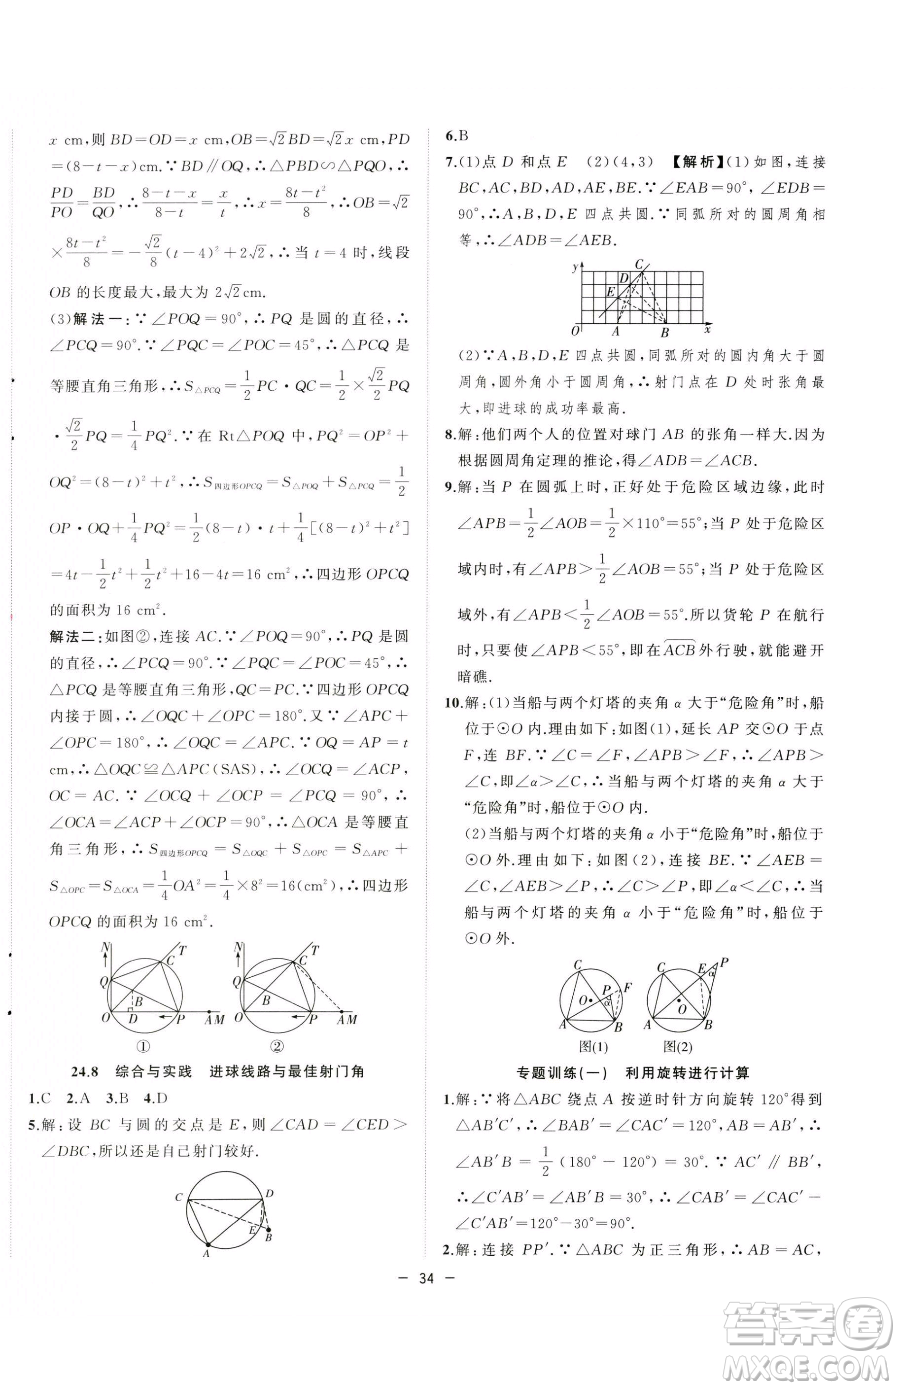 x cm,则 BD=OD=x cm,OB=√2BD=√2x cm,PD
=(8-t-x)cm.∵BD∥OQ,∴△PBD∽△PQO,∴
PD/PO=BD/QO,∴(8-t-x)/(8-t)=x/t,∴x=(8t-t²)/8,∴OB=√2
×(8t-t²)/8=-√2/8(t-4)²+2√2,∴当 t=4 时,线段
OB 的长度最大,最大为 2√2 cm.
(3)解法一:∵∠POQ=90°,∴PQ 是圆的直径,∴
∠PCQ=90°.∵∠PQC=∠POC=45°,∴△PCQ 是
等腰直角三角形,∴S△PCQ=1/2PC·QC=1/2×√2/2PQ
·√2/2PQ=1/4PQ².∵在 Rt△POQ 中,PQ²=OP²+
OQ²=(8-t)²+t²,∴S四边形OPCQ=S△POQ+S△PCQ=1/2
OP·OQ+1/4PQ²=1/2(8-t)·t+1/4[(8-t)²+t²]
=4t-1/2t²+1/2t²+16-4t=16(cm²),∴四边形OPCQ
的面积为 16 cm².
解法二:如图②,连接 AC.∵∠POQ=90°,∴PQ 是圆
的直径,∴∠PCQ=90°.∵∠PQC=∠POC=45°,∴
△PCQ 是等腰直角三角形,∴QC=PC.∵四边形OPCQ
内接于圆,∴∠OQC+∠OPC=180°.又∵∠APC+
∠OPC=180°,∴∠OQC=∠APC.∵OQ=AP=t
cm,∴△OQC≌△APC(SAS),∴∠OCQ=∠ACP,
OC=AC.∵∠OCQ+∠OCP=∠PCQ=90°,∴
∠OCA=∠ACP+∠OCP=90°,∴△OCA 是等腰直
角三角形,∴S四边形OPCQ=S△OQC+S△OPC=S△APC+
S△OPC=S△OCA=1/4OA²=1/4×8²=16(cm²),∴四边形
OPCQ 的面积为 16 cm².
N T Q C B O D P A M
N T Q C B O P A M
① ②
24.8 综合与实践 进球线路与最佳射门角
1.C 2.A 3.B 4.D
5.解:设 BC 与圆的交点是 E,∠CAD=∠CED>
∠DBC,所以还是自己射门较好.
C D E B A
6.B
7.(1)点 D 和点 E (2)(4,3) 【解析】(1)如图,连接
BC,AC,BD,AD,AE,BE.∵∠EAB=90°,∠EDB=
90°,∴A,B,D,E 四点共圆.∵同弧所对的圆周角相
等,∴∠ADB=∠AEB.
y C D E O A B x
(2)∵A,B,D,E 四点共圆,同弧所对的圆内角大于圆
周角,圆外角小于圆周角,∴射门点在 D 处时张角最
大,即进球的成功率最高.
8.解:他们两个人的位置对球门 AB 的张角一样大.因为
根据圆周角定理的推论,得∠ADB=∠ACB.
9.解:当 P 在圆弧上时,正好处于危险区域边缘,此时
∠APB=1/2∠AOB=1/2×110°=55°;当 P 处于危险区
域内时,有∠APB>1/2∠AOB=55°;当 P 处于危险区
域外,有∠APB<1/2∠AOB=55°.所以货轮 P 在航行
时,只要使∠APB<55°,即在ACB外行驶,就能避开
暗礁.
10.解:(1)当船与两个灯塔的夹角 α 大于“危险角”时,船
位于⊙O 内.理由如下:如图(1),延长 AP 交⊙O 于点
F,连 BF.∵∠C=∠F,∠APB>∠F,∴∠APB>
∠C,即∠α>∠C,∴当船与两个灯塔的夹角 α 大于
“危险角”时,船位于⊙O 内.
(2)当船与两个灯塔的夹角 α 小于“危险角”时,船位
于⊙O外.理由如下:如图(2),连接 BE.∵∠AEB=
∠C,∠AEB>∠α,∴∠α<∠C,∴∠APB<∠C,∴当
船与两个灯塔的夹角 α 小于“危险角”时,船位于
⊙O 外.
C O P F α A B
C E P α O A B
图(1) 图(2)
专题训练(一) 利用旋转进行计算
1.解:∵将△ABC 绕点 A 按逆时针方向旋转 120°得到
△AB′C′,∴∠BAB′=∠CAC′=120°,AB=AB′,∴
∠AB′B=1/2(180°-120°)=30°.∵AC′∥BB′,
∴∠C′AB′=∠AB′B=30°,∴∠CAB′=∠CAC′
-∠C′AB′=120°-30°=90°.
2.解:连接 PP′.∵△ABC 为正三角形,∴AB=AC,
－ 34 －
答案圈
MXQE.COM